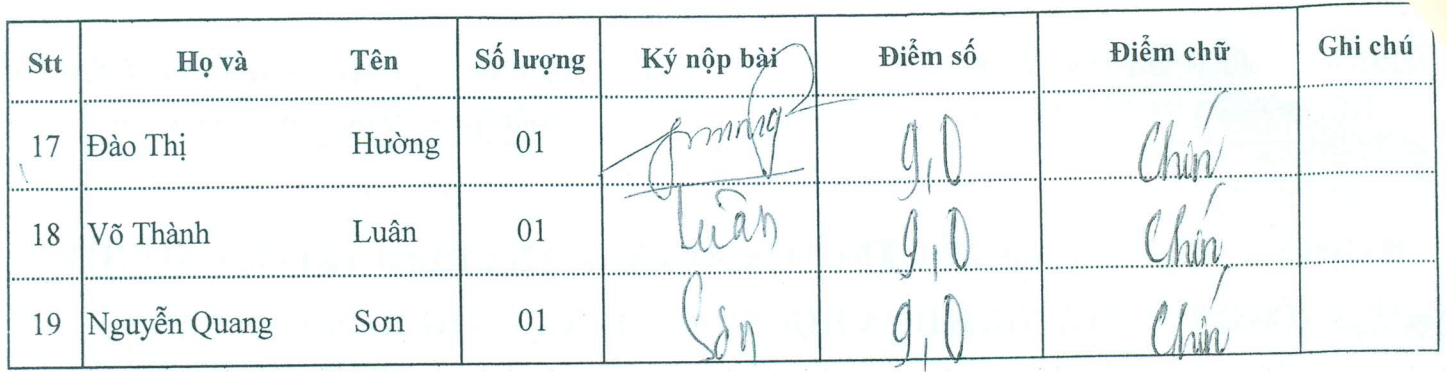 Stt Họ và Tên Số lượng Ký nộp bài Điểm số Điểm chữ Ghi chú
17 Đào Thị Hường 01 9,0 Chín
18 Võ Thành Luân 01 Luân 9,0 Chín
19 Nguyễn Quang Sơn 01 Sơn 9,0 Chín